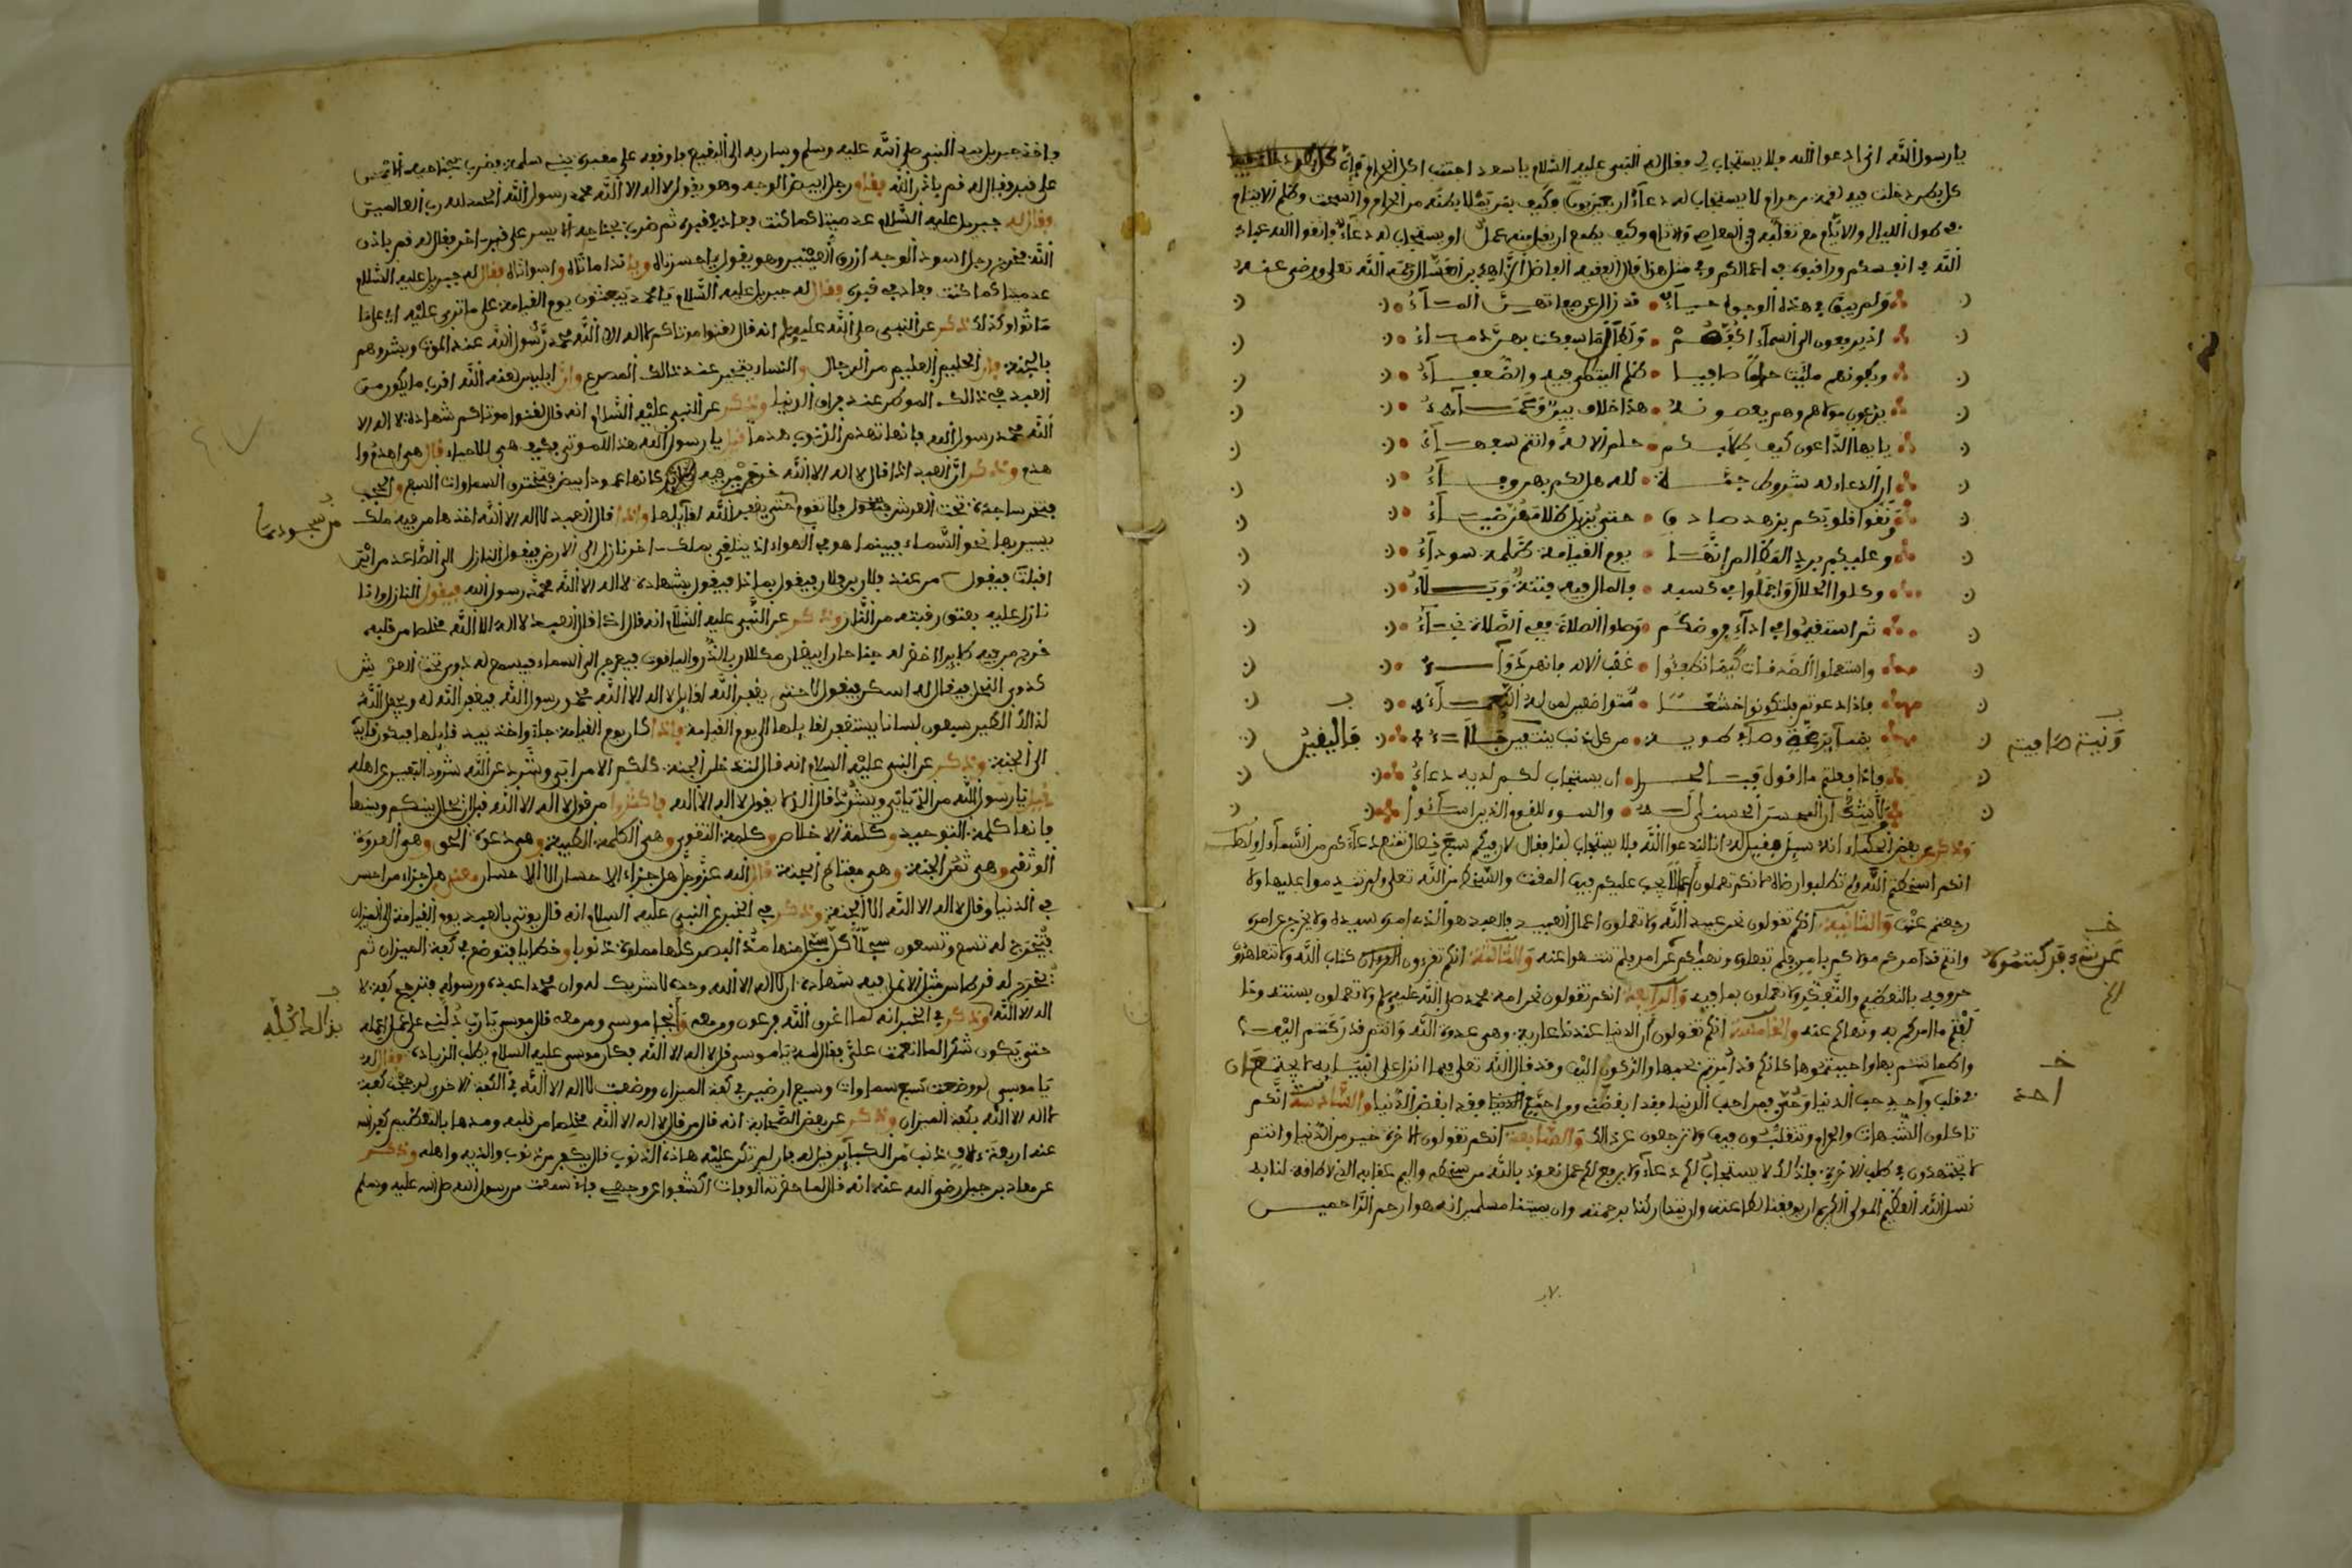 يا رسول الله اني ادعوا الله ولا يستجاب لي وقال له النبي عليه السلام يا سعد اجتنب اكل الحرام فان
كل بطن دخلت فيه لقمة من حرام لا يستجاب له دعاء اربعين يوما وكيف بمن يملأ بطنه من الحرام والسحت وظلم الايتام
في طول الليالي والايام مع تقلبه في المعاصي والاثام وكيف يطمع ان يقبل منه عمل او يستجاب له دعاء فاتقوا الله عباد
الله في انفسكم وراقبوه في اعمالكم وفي مثل هذا قال الفقيه الفاضل رحمه الله تعلى ورضي عنه
ولم يبق في هذه الوجوه حياء قد زال عن جمعاتهن الماء
اذ يرفعون الى السماء اكفهم ولطال ما سفكت بهن دماء
وبطونهم ملئت حراما صافيا ظلم اليتامى فيه والضعفاء
يدعون مولاهم وهم يعصونه هذا خلاف بين وعماء
يا ايها الداعون كيف حلم الاله وانتم سفهاء
ان الدعاء له شروط جمة لله هل لكم بهن وفاء
نقوا قلوبكم بزهد صادق حتى يزيل ظلامهن ضياء
وعليكم برد المظالم انها يوم القيامة ظلمة سوداء
وكلوا الحلال واجملوا في كسبه فالمال فيه فتنة وبلاء
ثم استقيموا في اداء فروضكم وصلوا الصلاة ففي الصلاة نجاء
واستعملوا الصدقات كيما تطفئوا غضب الاله فانهن دواء
فاذا دعوتم فلتكونوا خشعا متواضعين لمن له النعماء
من كل ذنب ينتقين جلاء
فاليقين
ونية صافية
واذا فعلتم ما اقول ان يستجاب لكم لديه دعاء
والسوء للقوم الذين اساءوا
وذكر عن بعض الحكماء انه سئل فقيل له انا لندعوا الله فلا يستجاب لنا فقال لان فيكم سبع خصال تمنع دعاءكم من السماء اولها
انكم اسخطتم الله ولم تطلبوا رضاه لانكم تعملون اعمالا يجب عليكم فيها المقت والسخط من الله تعلى ولم تندموا عليها ولا
رجعتم عنها والثانية انكم تقولون نحن عبيد الله ولا تعملون اعمال العبيد فالعبد هو الذي امره سيده ولا يخرج عن امره
وانتم قد امركم مولاكم بامر فلم تفعلوه ونهاكم عن امر فلم تنتهوا عنه والثالثة انكم تقرءون القرءان كتاب الله ولا تتعاهدوا
حروفه بالتعظيم والتفكير ولا تعملون بما فيه والرابعة انكم تقولون نحن امة محمد صلى الله عليه وسلم ولا تعملون بسنته
ما امركم به ونهاكم عنه والخامسة انكم تقولون ان الدنيا عندنا عارية وهي عدوة الله وانتم قد ركنتم اليها
واطمأننتم بها واحببتموها كانكم قد امرتم بحبها والركون اليها وقد قال الله تعلى فيما انزل على انبيايه لا يجتمعان
في قلب واحد حب الدنيا وحبي فمن احب الدنيا فقد ابغضني ومن احبني فقد ابغض الدنيا والسادسة انكم
تاكلون الشبهات والحرام وتتقلبون فيها ولا ترجعون عن ذالك والسابعة انكم تقولون الاخرة خير من الدنيا وانتم
لا تجتهدون في طلب الاخرة فلذالك لا يستجاب لكم دعاء ولا يرفع لكم عمل نعوذ بالله من سخطه واليم عقابه الذي لا طاقة لنا به
نسل الله العظيم المولى الكريم ان يوفقنا لطاعته وان يتداركنا برحمته وان يميتنا مسلمين انه هو ارحم الراحمين
فاخذ جبريل بيد النبي صلى الله عليه وسلم وسار به الى البقيع فاوقفه على مقبرة بني سلمة فضرب بجناحيه الايمن
على قبر وقال له قم باذن الله فقام رجل ابيض الوجه وهو يقول لا اله الا الله محمد رسول الله الحمد لله رب العالمين
وقال له جبريل عليه السلام عد ميتا كما كنت فعاد في قبره ثم ضرب بجناحيه الايسر على قبر اخر وقال له قم باذن
الله فخرج رجل اسود الوجه ازرق العينين وهو يقول يا حسرتاه ويا ندامتاه واسوأتاه فقال له جبريل عليه السلام
عد ميتا كما كنت فعاد في قبره وقال له جبريل عليه السلام يا محمد يبعثون يوم القيامة على ما ترى عليه اي على ما
ماتوا وكذلك ذكر عن النبي صلى الله عليه وسلم انه قال لقنوا موتاكم لا اله الا الله محمد رسول الله عند الموت وبشروهم
بالجنة فان الحليم العليم من الرجال والنساء يتحير عند ذالك المصرع وان ابليس لعنه الله اقرب ما يكون من
العبد في ذالك الموطن عند فراق الدنيا وذكر عن النبي عليه السلام انه قال لقنوا موتاكم شهادة لا اله الا
الله محمد رسول الله فانها تهدم الذنوب هدما قيل يا رسول الله هذا للموتى فكيف هي للاحياء قال هي اهدم
هدم وذكر ان العبد اذا قال لا اله الا الله خرج من فيه كانها عمود ابيض فتخترق السماوات السبع والحجب
فتخر ساجدة تحت العرش فتقول لا نقوم حتى يغفر الله لقائلها واذا قال العبد لا اله الا الله اخذها من فيه ملك
من سجودها
يسير بها نحو السماء فبينما هو في الهواء اذ يتلقى بملك اخر نازل الى الارض فيقول النازل الى الصاعد من اين
اقبلت فيقول من عند فلان بن فلان فيقول بماذا فيقول بشهادة لا اله الا الله محمد رسول الله فيقول النازل وانا
نازل عليه بعتق رقبته من النار وذكر عن النبي عليه السلام انه قال اذا قال العبد لا اله الا الله مخلصا من قلبه
خرج من فيه طاير اخضر له جناحان ابيضان مكللان بالدر والياقوت فيعرج الى السماء فيسمع له دوي تحت العرش
كدوي النحل فيقال له اسكن فيقول لا حتى يغفر الله لقايل لا اله الا الله محمد رسول الله فيغفر الله له ويجعل الله
لذالك الطير سبعون لسانا يستغفر لقايلها الى يوم القيامة فاذا كان يوم القيامة جاء واخذ بيد قايلها فيكون قايده
الى الجنة وذكر عن النبي عليه السلام انه قال لتدخلن الجنة كلكم الا من ابى وشرد عن الله شرود البعير عن اهله
قيل يا رسول الله من الذي يابى ويشرد قال الذي لا يقول لا اله الا الله فاكثروا من قول لا اله الا الله قبل ان يحال بينكم وبينها
فانها كلمة التوحيد وكلمة الاخلاص وكلمة التقوى وهي الكلمة الطيبة وهي دعوة الحق وهي العروة
الوثقى وهي ثمن الجنة وهي مفتاح الجنة قال الله عز وجل هل جزاء الاحسان الا الاحسان معنى هل جزاء من احسن
في الدنيا وقال لا اله الا الله الا الجنة وذكر في الخبر عن النبي عليه السلام انه قال يوتى بالعبد يوم القيامة الى الميزان
فتخرج له تسع وتسعون سجلا كل سجل منها مد البصر كلها مملوءة ذنوبا وخطايا فتوضع في كفة الميزان ثم
يخرج له قرطاس مثل الانملة فيه شهادة ان لا اله الا الله وحده لا شريك له وان محمدا عبده ورسوله فترجح كفة لا
اله الا الله وذكر في الخبر انه لما اغرق الله فرعون ومن معه وانجا موسى ومن معه قال موسى يا رب دلني على عمل اعمله
حتى يكون شكرا لما انعمت علي فقال له يا موسى قل لا اله الا الله فكان موسى عليه السلام يطلب الزيادة فقال له
يا موسى لو وضعت سبع سماوات وسبع ارضين في كفة الميزان ووضعت لا اله الا الله في الكفة الاخرى لرجحت كفة
لا اله الا الله بكفة الميزان وذكر عن بعض الصحابة انه قال من قال لا اله الا الله مخلصا من قلبه ومدها بالتعظيم كفر الله
عنه اربعة ءالاف ذنب من الكبائر قيل له فان لم تكن عليه هذه الذنوب قال يكفر من ذنوب والديه واهله وذكر
عن معاذ بن جبل رضي الله عنه انه قال لما حضرته الوفاة اكشفوا عن وجهي فاني سمعت من رسول الله صلى الله عليه وسلم